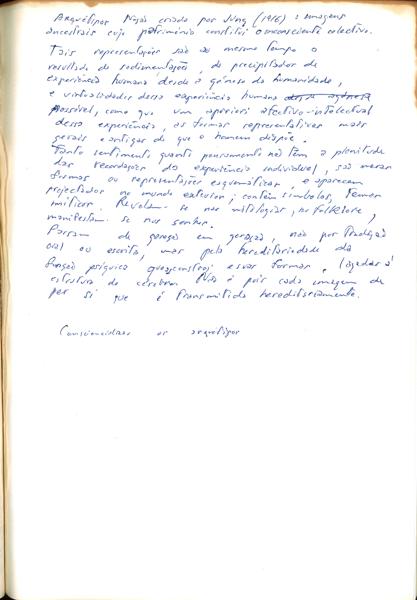 Arquétipos Noção criada por Jung (1916): imagens
ancestrais cujo património constitui o inconsciente colectivo.
Tais representações são ao mesmo tempo o
resultado de sedimentação, de precipitador de
experiência humana desde a génese da humanidade,
e virtualidades dessa experiência humana
possível, como que um apriori afectivo-intelectual
dessa experiência, as formas representativas mais
gerais e antigas de que o homem dispõe.
Tanto sentimento quanto pensamento não têm a plenitude
das recordações da experiência individual, são meras
formas ou representações esquemáticas, e aparecem
projectados no mundo exterior; contêm símbolos, temas
míticos. Revelam-se nas mitologias, no folklore,
manifestam-se nos sonhos.
Passam de geração em geração, não por tradição
oral ou escrita, mas pela hereditariedade da
função psíquica que constrói essas formas, ligadas à
estrutura do cérebro. Não é pois cada imagem de
per si que é transmitida hereditariamente.
Consciencializar os arquétipos